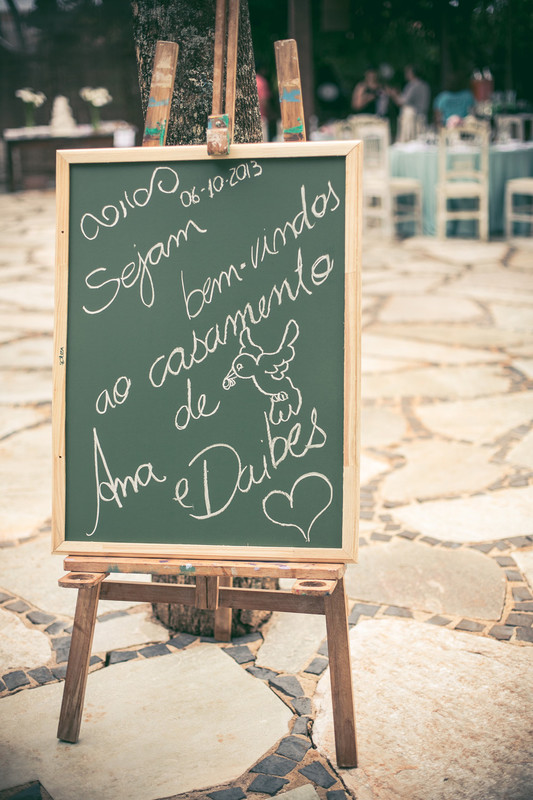 06-10-2013
Sejam
bem-vindos
ao casamento
de
Ana
e Daibes